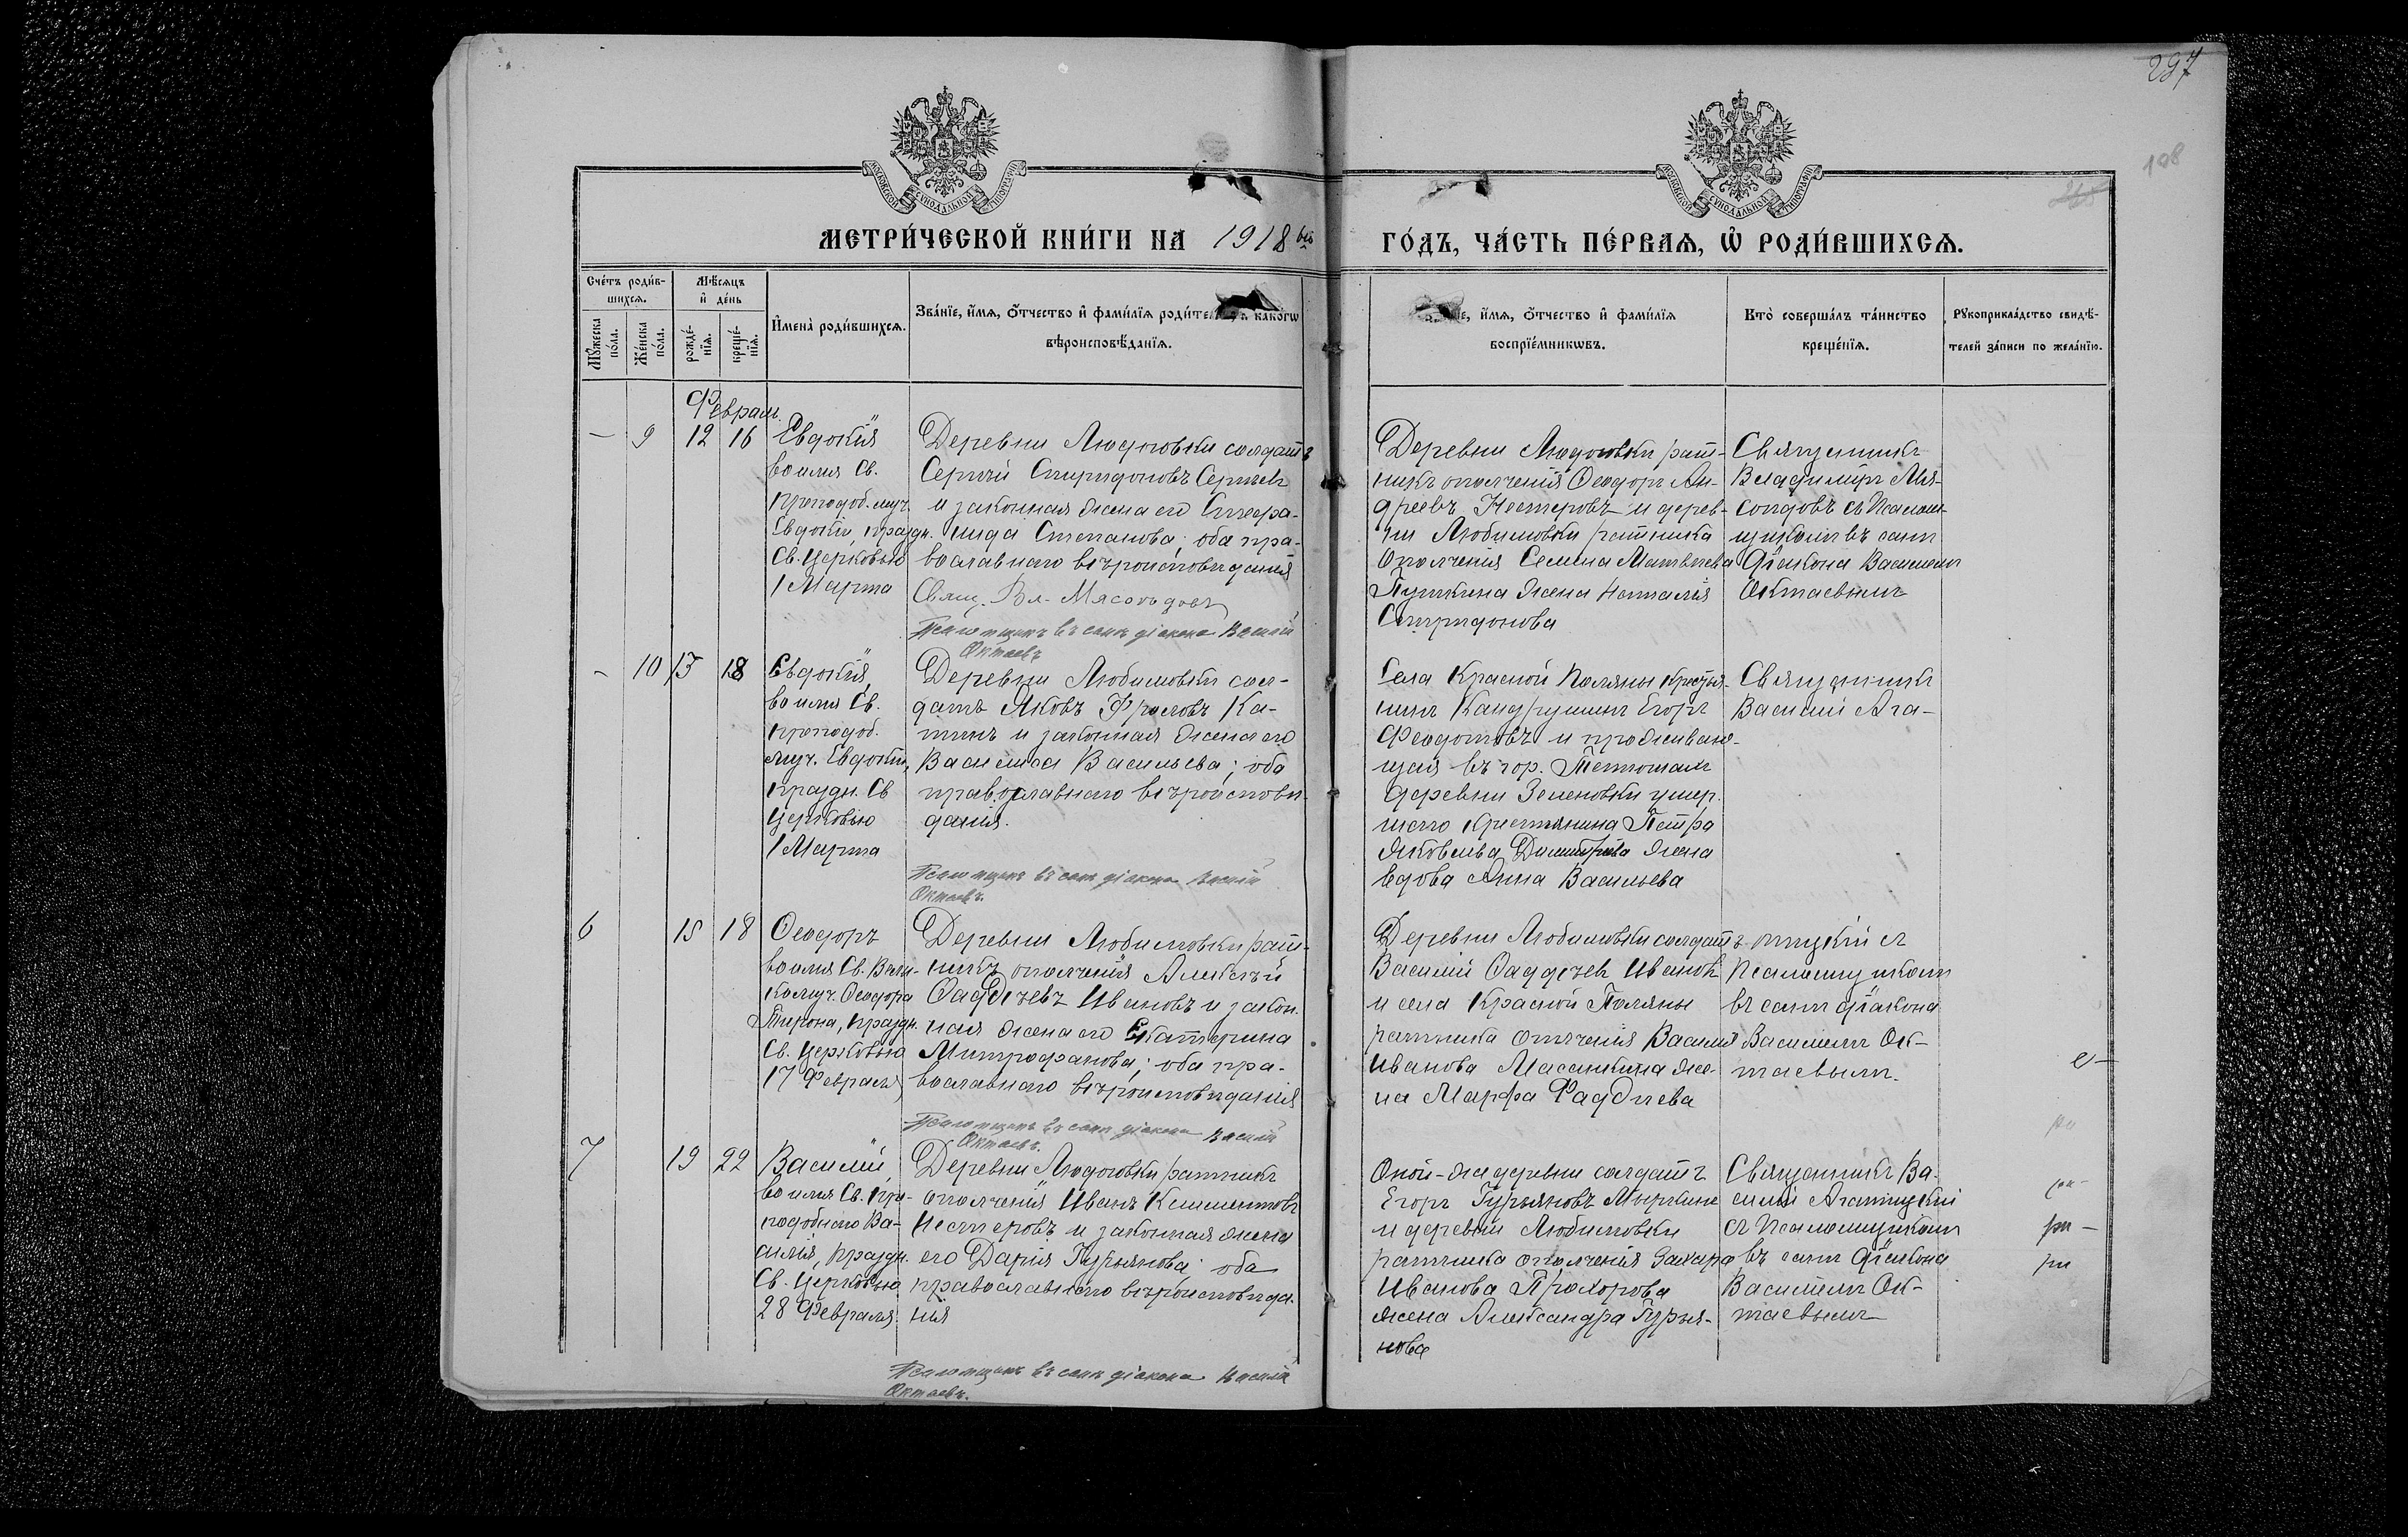 297
108
МОСКОВСКОЙ СѴНОДАЛЬНОЙ ТИПОГРАФІИ
МОСКОВСКОЙ СѴНОДАЛЬНОЙ ТИПОГРАФІИ
МЕТРИ́ЧЕСКОЙ КНИ́ГИ НА 1918 й ГО́ДЪ, ЧА́СТЬ ПЕ́РВАѦ, Ѽ РОДИ́ВШИХСѦ.
Сче́тъ роди́в-
шихсѧ.
Мѣ́сѧцъ
и҆ де́нь
Мꙋ́жеска
по́ла.
Же́нска
по́ла.
рожде́-
нїѧ.
креще́-
нїѧ.
И҆мена̀ роди́вшихсѧ.
Зва́нїе, и҆́мѧ, ѻ҆́тчество и҆ фами́лїѧ роди́те како́гѡ
вѣроисповѣ́данїѧ.
и҆́мѧ, ѻ҆́тчество и҆ фами́лїѧ
воспрїе́мникѡвъ.
Кто̀ соверша́лъ та́инство
креще́нїѧ.
Рꙋкоприкла́дство свидѣ́-
телей за́писи по жела́нїю.
Февраль
— 9 12 16
Евдокія
во имя Св.
преподоб. муч.
Евдокіи, праздн.
Св. Церковью
1 Марта
Деревни Людоговки солдатъ
Сергѣй Спиридоновъ Сергѣевъ
и законная жена его Стефа-
нида Степанова; оба пра-
вославнаго вѣроисповѣданія
Свящ. Вл. Мясоѣдовъ
Псаломщикъ въ санѣ діакона Василій
Октаевъ
Деревни Людоговки рат-
никъ ополченія Ѳеодоръ Ан-
дреевъ Нестеровъ и дерев-
ни Любимовки ратника
ополченія Семена Матвѣева
Пушкина жена Наталія
Спиридонова
Священникъ
Владиміръ Мя-
соѣдовъ съ Псалом-
щикомъ въ санѣ
діакона Василіемъ
Октаевымъ
— 10 13 18
Евдокія,
во имя Св.
преподоб.
муч. Евдокіи,
праздн. Св
Церковью
1 Марта
Деревни Любимовки сол-
датъ Яковъ Фроловъ Ка-
тинъ и законная жена его
Василиса Васильева; оба
православнаго вѣроисповѣ-
данія.
Псаломщикъ въ санѣ діакона Василій
Октаевъ.
Села Красной Поляны крестья-
нинъ Егоръ
Феодотовъ и проживаю-
щая въ гор. Тетюшахъ
деревни Зеленовки умер-
шаго крестьянина Петра
Яковлева Димитріева жена
вдова Анна Васильева
Священникъ
Василій Ага-
6 15 18
Ѳеодоръ
во имя Св. Вели-
комуч. Ѳеодора
Тирона, праздн.
Св. Церковью
17 Февраля
Деревни Любимовки рат-
никъ ополченія Алексѣй
Ѳаддѣевъ Ивановъ и закон-
ная жена его Екатерина
Митрофанова; оба пра-
вославнаго вѣроисповѣданія
Псаломщикъ въ санѣ діакона Василій
Октаевъ.
Деревни Любимовки солдатъ
Василій Ѳаддѣевъ Ивановъ
и села Красной Поляны
ратника ополченія Василія
Иванова Масанкина же-
на Марфа Фаддѣева
питцкій съ
Псаломщикомъ
въ санѣ діакона
Василіемъ Ок-
таевымъ.
7 19 22
Василій,
во имя Св. Пре-
подобнаго Ва-
силія, праздн.
Св. Церковью
28 Февраля
Деревни Людоговки ратникъ
ополченія Иванъ Климентовъ
Нестеровъ и законная жена
его Дарія Гурьянова; оба
православнаго вѣроисповѣда-
нія
Псаломщикъ въ санѣ діакона Василій
Октаевъ.
Оной-же деревни солдатъ
Егоръ Гурьяновъ
и деревни Любимовки
ратника ополченія Захара
Иванова Прохорова
жена Александра Гурья-
нова
Священникъ Ва-
силій Агапитцкій
съ Псаломщикомъ
въ санѣ діакона
Василіемъ Ок-
таевымъ